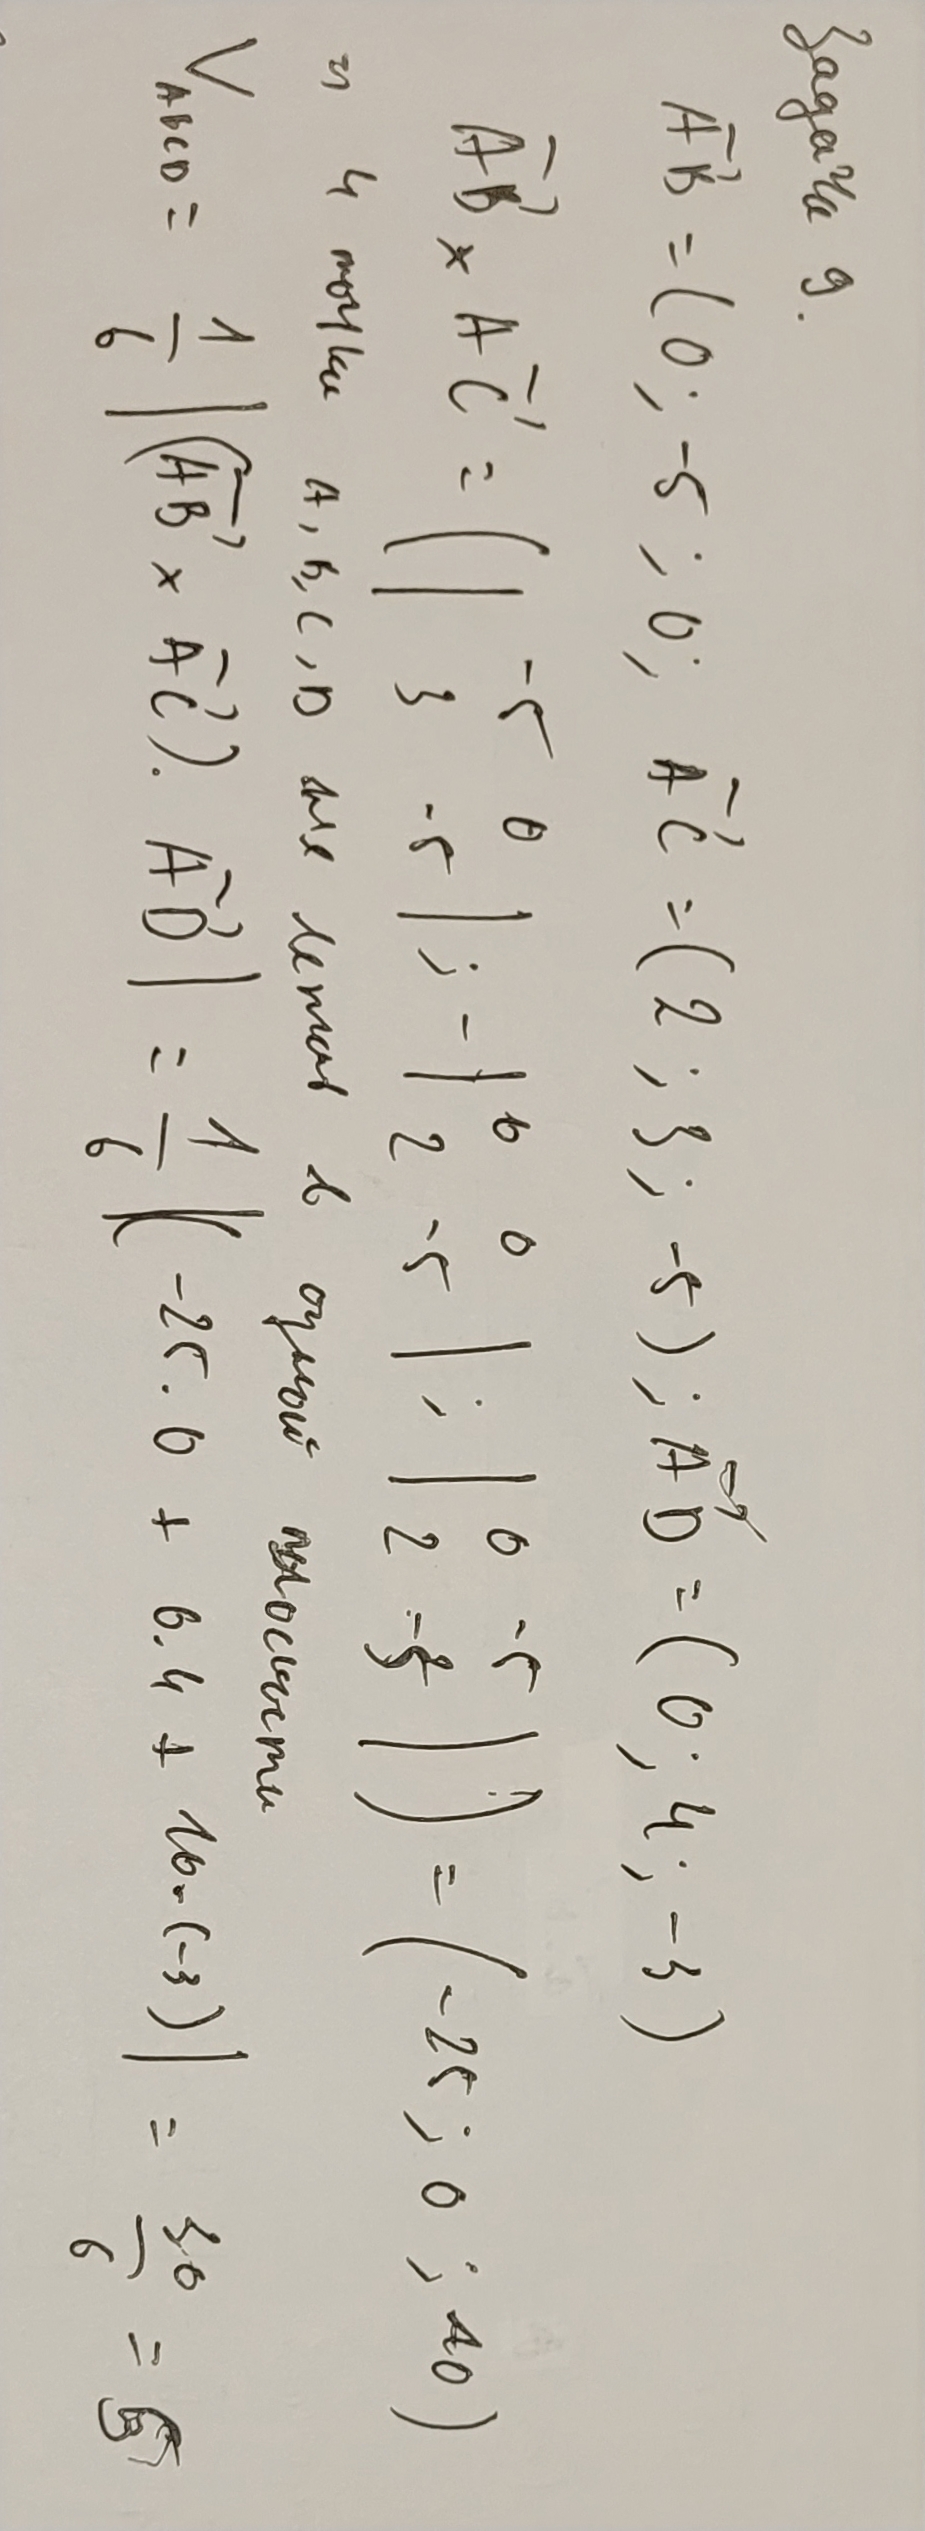 Задача 9.
AB = (0; -5; 0; AC = (2; 3; -5); AD = (0; 4; -3)
AB × AC = (| -5 0 / 3 -5 |; -| 0 0 / 2 -5 |; | 0 -5 / 2 3 |) = (-25; 0; 10)
=> 4 точки A, B, C, D не лежат в одной плоскости
V_ABCD = 1/6 |(AB × AC). AD| = 1/6 |(-25.0 + 0.4 + 10.(-3)| = 30/6 = 5